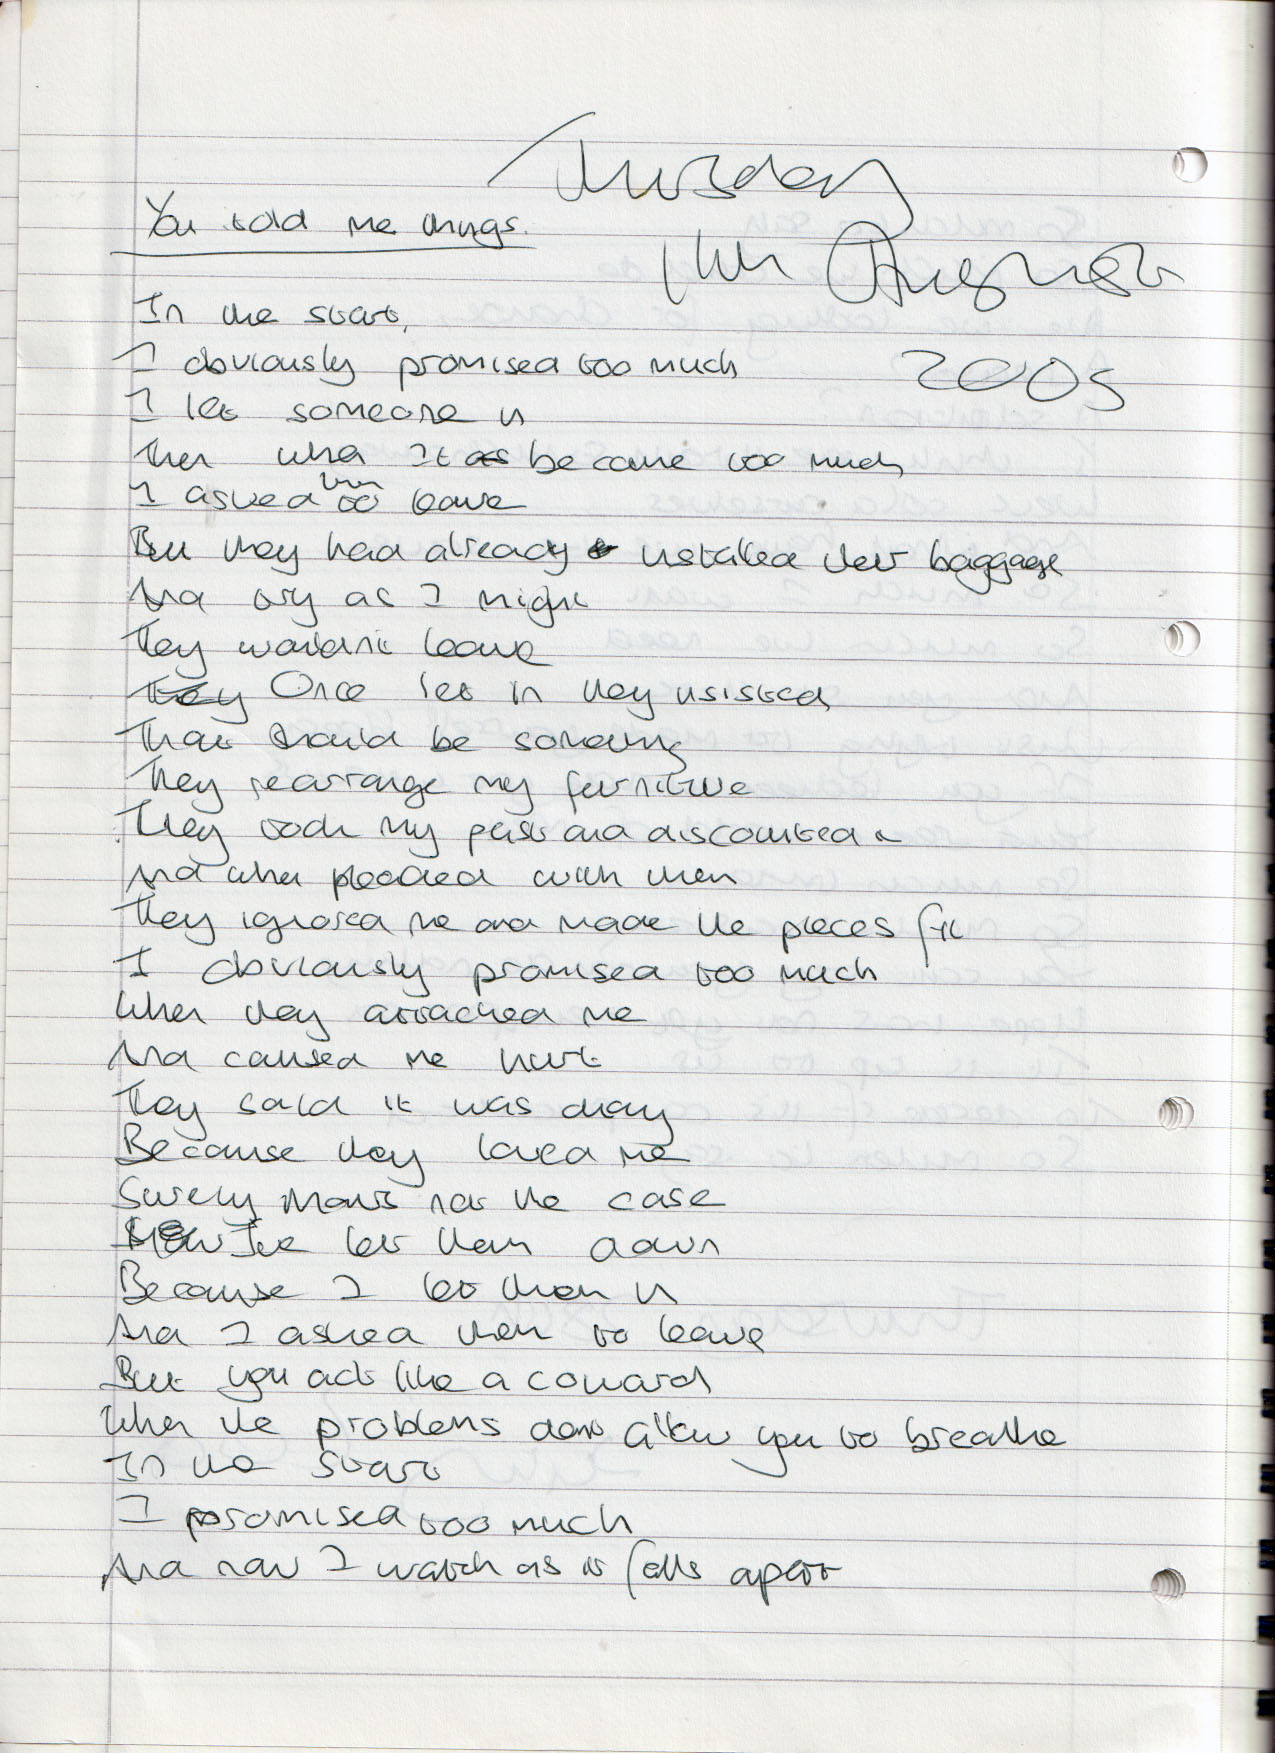 Thursday
11th August
2005
You told me things.
In the start,
I obviously promised too much
I let someone in
Then when it as became too much
I asked them to leave
But they had already installed their baggage
And try as I might
They wouldn't leave
They Once let in they insisted,
That should be something
They rearrange my furniture
They took my past and discounted
And when pleaded with them
They ignored me and made the pieces fit
I obviously promised too much
When they attacked me
And caused me hurt
They said it was okay
Because they loved me
Surely that's not the case
I've let them down
Because I let them in
And I asked them to leave
But you act like a coward
When the problems don't allow you to breathe
In the start
I promised too much
And now I watch as it falls apart